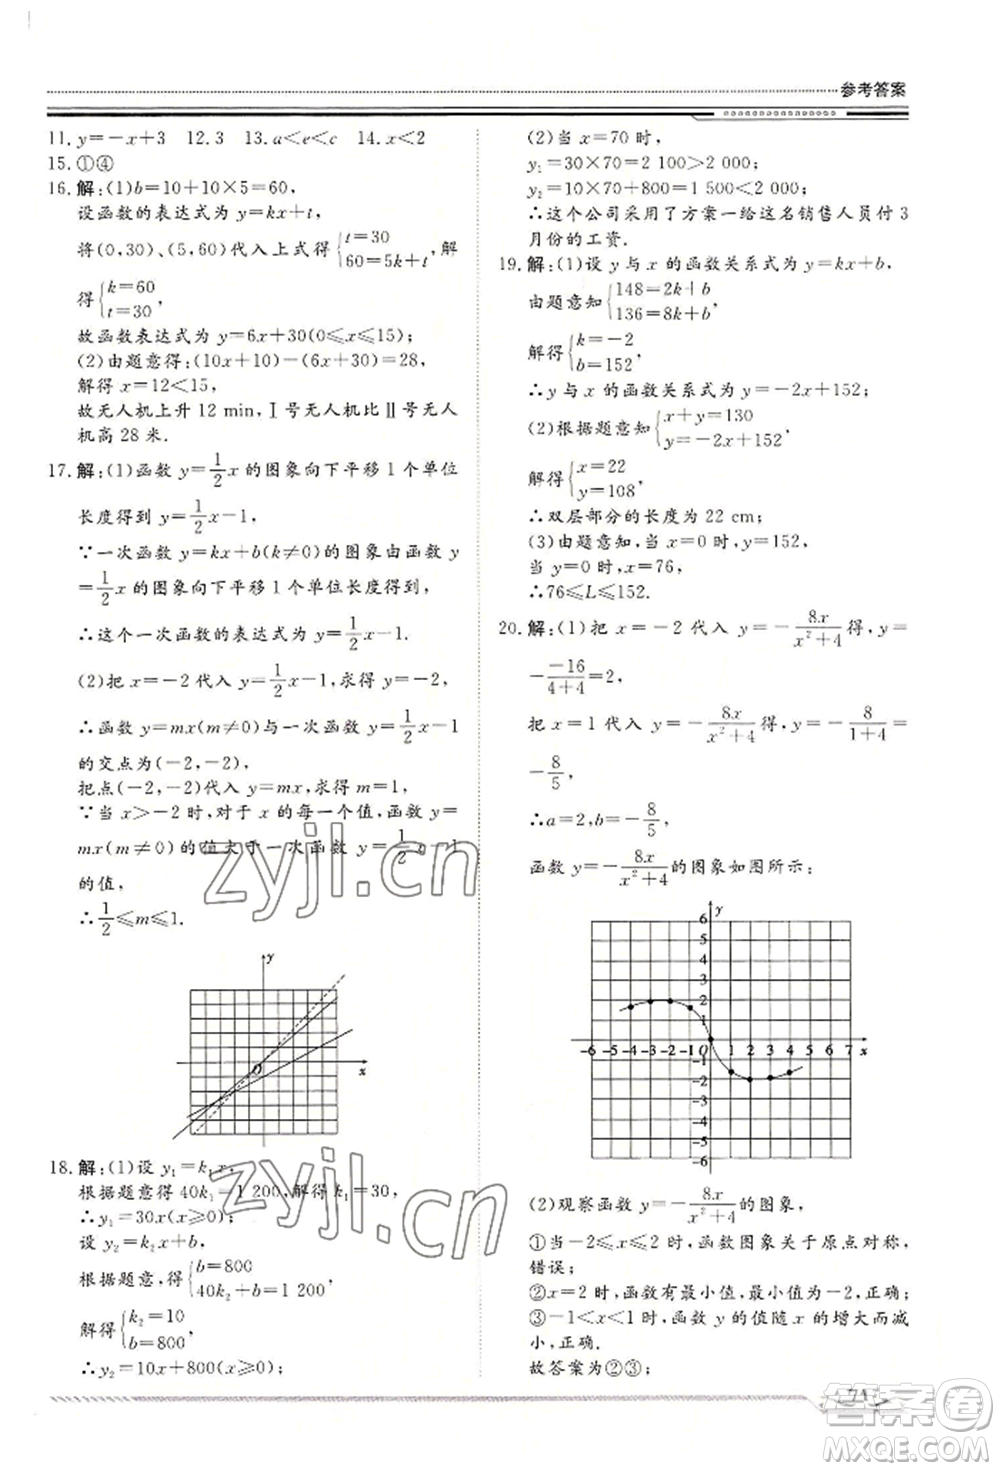 参考答案
11. y=-x+3 12. 3 13. a<e<c 14. x<2
15. ①④
16. 解:(1)b=10+10×5=60,
设函数的表达式为 y=kx+t,
将(0,30)、(5,60)代入上式得{t=30 60=5k+t, 解
得{k=60 t=30,
故函数表达式为 y=6x+30(0≤x≤15);
(2)由题意得:(10x+10)-(6x+30)=28,
解得 x=12<15,
故无人机上升 12 min,Ⅰ号无人机比Ⅱ号无人
机高 28 米.
17. 解:(1)函数 y=1/2 x 的图象向下平移 1 个单位
长度得到 y=1/2 x-1,
∵一次函数 y=kx+b(k≠0)的图象由函数 y
=1/2 x 的图象向下平移 1 个单位长度得到,
∴这个一次函数的表达式为 y=1/2 x-1.
(2)把 x=-2 代入 y=1/2 x-1,求得 y=-2,
∴函数 y=mx(m≠0)与一次函数 y=1/2 x-1
的交点为(-2,-2),
把点(-2,-2)代入 y=mx,求得 m=1,
∵当 x>-2 时,对于 x 的每一个值,函数 y=
mx(m≠0)的值大于一次函数 y=1/2 x-1
的值,
∴1/2≤m≤1.
y
O
x
18. 解:(1)设 y₁=k₁x,
根据题意得 40k₁=1 200,解得 k₁=30,
∴y₁=30x(x≥0);
设 y₂=k₂x+b,
根据题意,得{b=800 40k₂+b=1 200,
解得{k₂=10 b=800,
∴y₂=10x+800(x≥0);
(2)当 x=70 时,
y₁=30×70=2 100>2 000,
y₂=10×70+800=1 500<2 000,
∴这个公司采用了方案一给这名销售人员付 3
月份的工资.
19. 解:(1)设 y 与 x 的函数关系式为 y=kx+b,
由题意知{148=2k+b 136=8k+b,
解得{k=-2 b=152,
∴y 与 x 的函数关系式为 y=-2x+152;
(2)根据题意知{x+y=130 y=-2x+152,
解得{x=22 y=108,
∴双层部分的长度为 22 cm;
(3)由题意知,当 x=0 时,y=152,
当 y=0 时,x=76,
∴76≤L≤152.
20. 解:(1)把 x=-2 代入 y=-8x/(x²+4)得,y=
-(-16)/(4+4)=2,
把 x=1 代入 y=-8x/(x²+4)得,y=-8/(1+4)=
-8/5,
∴a=2,b=-8/5,
函数 y=-8x/(x²+4)的图象如图所示:
y
6
5
4
3
2
1
-6 -5 -4 -3 -2 -1 O 1 2 3 4 5 6 7 x
-1
-2
-3
-4
-5
-6
(2)观察函数 y=-8x/(x²+4)的图象,
①当-2≤x≤2 时,函数图象关于原点对称,
错误;
②x=2 时,函数有最小值,最小值为-2,正确;
③-1<x<1 时,函数 y 的值随 x 的增大而减
小,正确.
故答案为②③;
71
zyjl.cn
zyjl.cn
答案卷
MXQE.COM